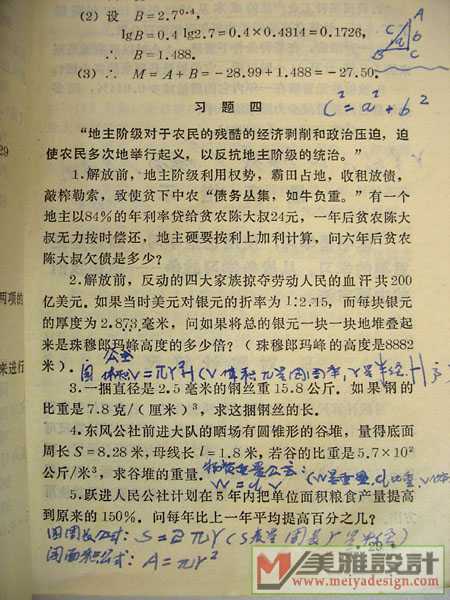 (2) 设 B=2.7⁰·⁴,
lgB=0.4 lg2.7=0.4×0.4314=0.1726,
∴ B=1.488.
(3) ∴ M=A+B=-28.99+1.488=-27.50.
A
C
B
C
习题四
c²=a²+b²
“地主阶级对于农民的残酷的经济剥削和政治压迫，迫
使农民多次地举行起义，以反抗地主阶级的统治。”
1.解放前，地主阶级利用权势，霸田占地，收租放债，
敲榨勒索，致使贫下中农“债务丛集，如牛负重。”有一个
地主以84%的年利率贷给贫农陈大叔24元，一年后贫农陈大
叔无力按时偿还，地主硬要按利上加利计算，问六年后贫农
陈大叔欠债是多少？
2.解放前，反动的四大家族掠夺劳动人民的血汗共200
亿美元．如果当时美元对银元的折率为1:2.15，而每块银元
的厚度为2.873毫米，问如果将总的银元一块一块地堆叠起
来是珠穆郎玛峰高度的多少倍？（珠穆郎玛峰的高度是8882
米）．
公式
V=πr²H (V体积 π是圆周率, r是半径 H
3.一捆直径是2.5毫米的钢丝重15.8公斤．如果钢的
比重是7.8克/（厘米）³，求这捆钢丝的长．
4.东风公社前进大队的晒场有圆锥形的谷堆，量得底面
周长S=8.28米，母线长l=1.8米，若谷的比重是5.7×10²
公斤/米³，求谷堆的重量．
公式：
W=dV
(W是重量, d比重, V体
5.跃进人民公社计划在5年内把单位面积粮食产量提高
到原来的150%．问每年比上一年平均提高百分之几？
公式: S=2πr (S表示圆周长 r
圆面积公式: A=πr²
29
两项的
来进行
29
美雅設計
www.meiyadesign.com